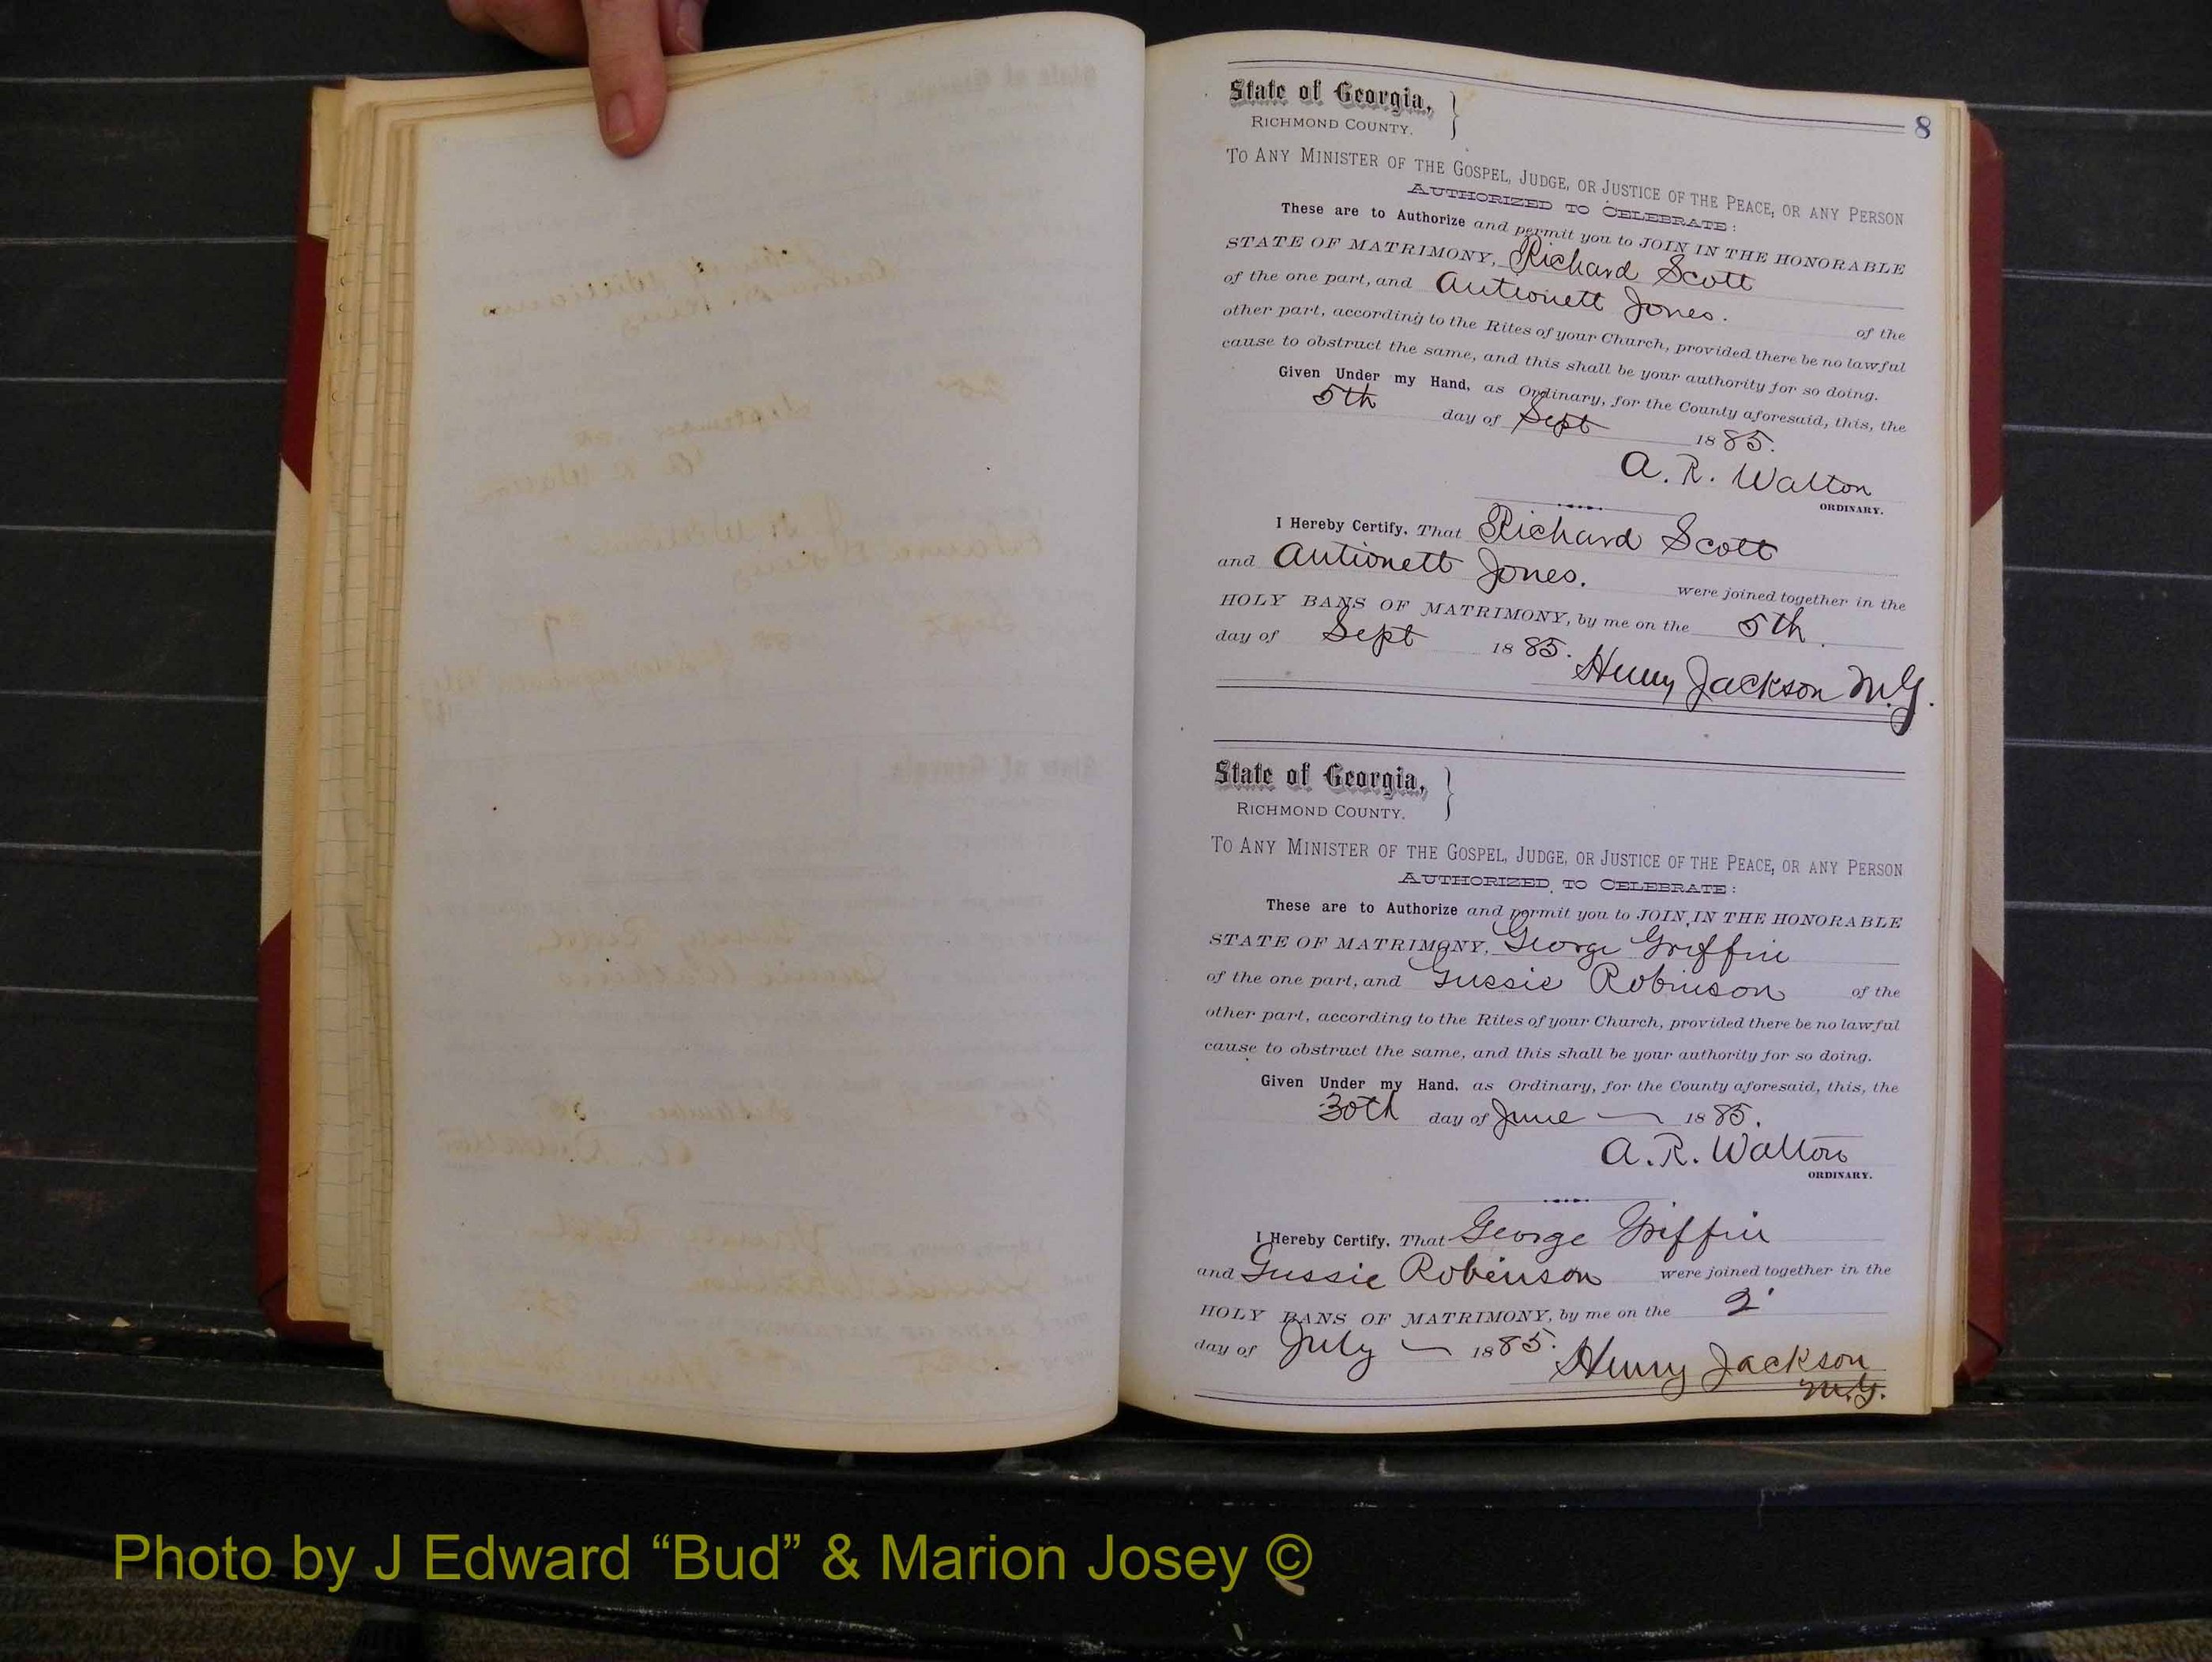 8
State of Georgia,
RICHMOND COUNTY.
TO ANY MINISTER OF THE GOSPEL, JUDGE, OR JUSTICE OF THE PEACE, OR ANY PERSON
AUTHORIZED TO CELEBRATE:
These are to Authorize and permit you to JOIN IN THE HONORABLE
STATE OF MATRIMONY, Richard Scott
of the one part, and Antionett Jones. of the
other part, according to the Rites of your Church, provided there be no lawful
cause to obstruct the same, and this shall be your authority for so doing.
Given Under my Hand, as Ordinary, for the County aforesaid, this, the
5th day of Sept 1885.
A. R. Walton
ORDINARY.
I Hereby Certify, That Richard Scott
and Antionett Jones. were joined together in the
HOLY BANS OF MATRIMONY, by me on the 5th
day of Sept 1885.
Henry Jackson M.G.
State of Georgia,
RICHMOND COUNTY.
TO ANY MINISTER OF THE GOSPEL, JUDGE, OR JUSTICE OF THE PEACE, OR ANY PERSON
AUTHORIZED TO CELEBRATE:
These are to Authorize and permit you to JOIN IN THE HONORABLE
STATE OF MATRIMONY, George Griffin
of the one part, and Gussie Robinson of the
other part, according to the Rites of your Church, provided there be no lawful
cause to obstruct the same, and this shall be your authority for so doing.
Given Under my Hand, as Ordinary, for the County aforesaid, this, the
30th day of June 1885.
A. R. Walton
ORDINARY.
I Hereby Certify, That George Griffin
and Gussie Robinson were joined together in the
HOLY BANS OF MATRIMONY, by me on the 2
day of July 1885.
Henry Jackson
M.G.
Photo by J Edward “Bud” & Marion Josey ©